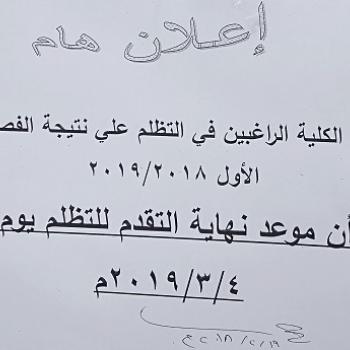 إعلان هام
الكلية الراغبين في التظلم علي نتيجة الفص
الأول ٢٠١٩/٢٠١٨
أن موعد نهاية التقدم للتظلم يوم
٢٠١٩/٣/٤م